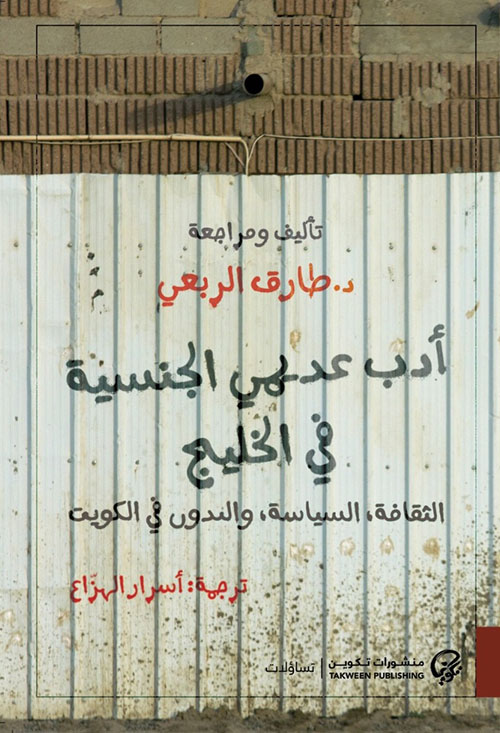 تأليف ومراجعة
د. طارق الربعي
أدب عديمي الجنسية
في الخليج
الثقافة، السياسة، والبدون في الكويت
ترجمة: أسرار الهزّاع
منشورات تكوين | تساؤلات
TAKWEEN PUBLISHING
تكوين